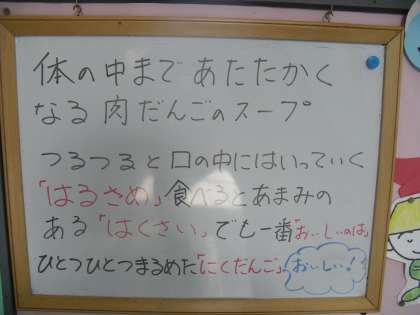 体の中まであたたかく
なる肉だんごのスープ
つるつると口の中にはいっていく
「はるさめ」食べるとあまみの
ある「はくさい」でも一番「おいしいのは」
ひとつひとつまるめた「にくだんご」
おいしい!